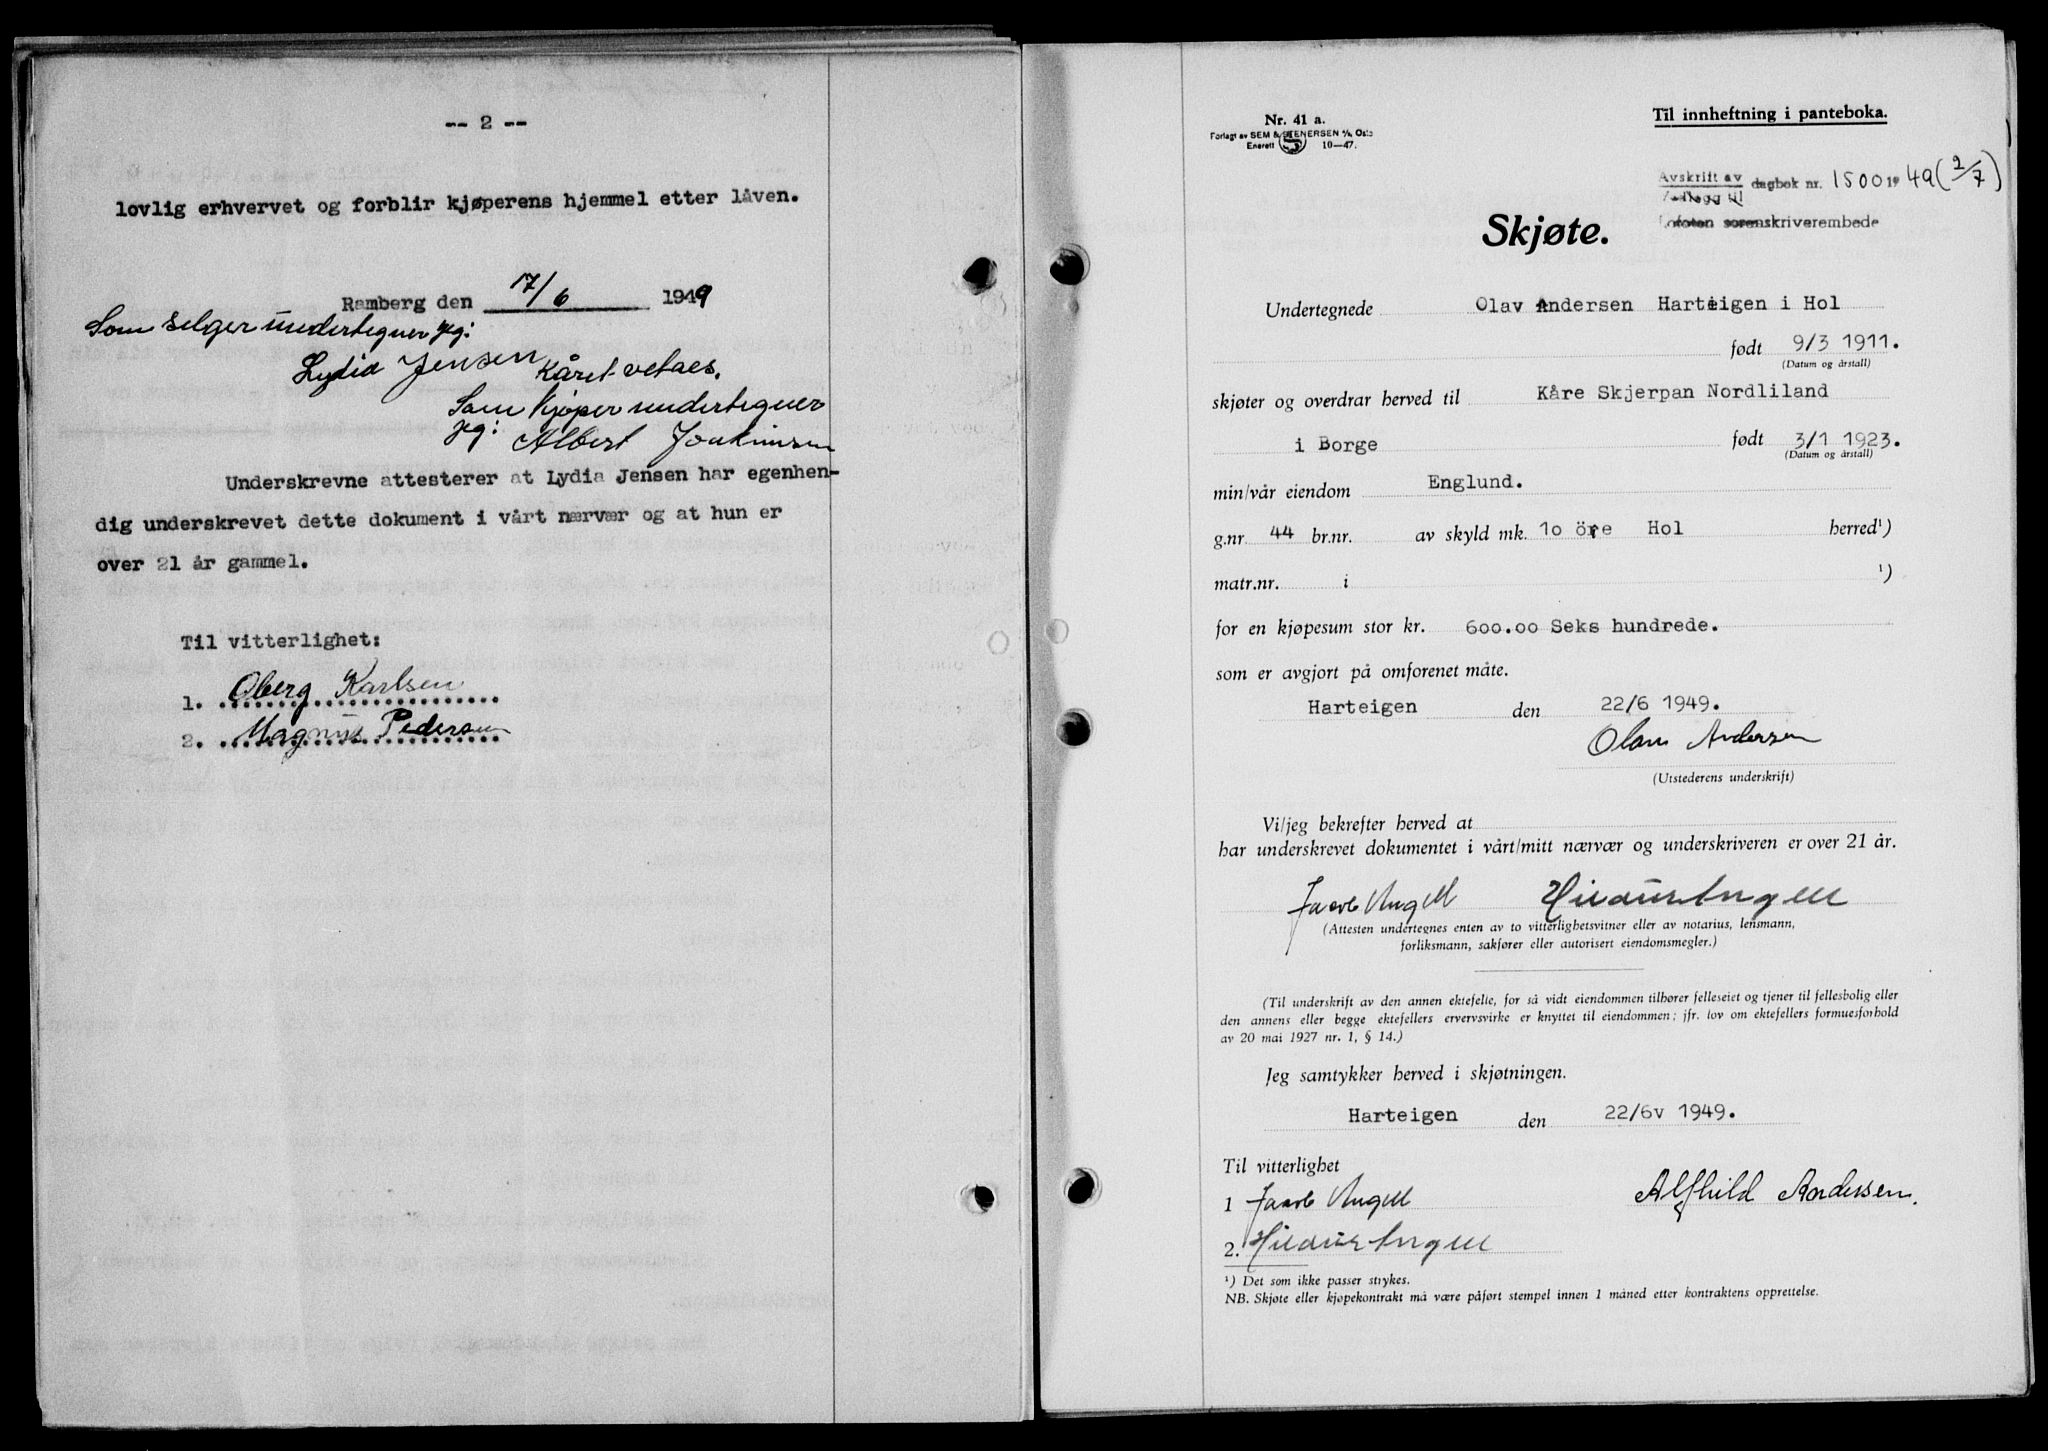 -- 2 --
lovlig erhvervet og forblir kjøperens hjemmel etter låven.
Ramberg den 17/6 1949
Som selger undertegner jeg:
Lydia Jensen
Som kjøper undertegner
jeg: Albert Joakimsen
Underskrevne attesterer at Lydia Jensen har egenhen-
dig underskrevet dette dokument i vårt nærvær og at hun er
over 21 år gammel.
Til vitterlighet:
1. Oberg Karlsen
2. Magnus Pedersen
Nr. 41 a.
Forlagt av SEM & STENERSEN A/S, Oslo
Enerett 10—47.
Til innheftning i panteboka.
Avskrift av
Vedlegg til
dagbok nr. 1500 1949 (2/7)
Lofoten sorenskriverembede
Skjøte.
Undertegnede Olav Andersen Harteigen i Hol
født 9/3 1911.
(Datum og årstall)
skjøter og overdrar herved til Kåre Skjerpan Nordliland
i Borge født 3/1 1923.
(Datum og årstall)
min/vår eiendom Englund.
g.nr 44 br.nr. av skyld mk. 10 öre Hol herred¹)
matr.nr. i ¹)
for en kjøpesum stor kr. 600.00 Seks hundrede.
som er avgjort på omforenet måte.
Harteigen den 22/6 1949.
Olav Andersen
(Utstederens underskrift)
Vi/jeg bekrefter herved at
har underskrevet dokumentet i vårt/mitt nærvær og underskriveren er over 21 år.
Angell Hildur Angell
(Attesten undertegnes enten av to vitterlighetsvitner eller av notarius, lensmann,
forliksmann, sakfører eller autorisert eiendomsmegler.)
(Til underskrift av den annen ektefelle, for så vidt eiendommen tilhører felleseiet og tjener til fellesbolig eller
den annens eller begge ektefellers ervervsvirke er knyttet til eiendommen; jfr. lov om ektefellers formuesforhold
av 20 mai 1927 nr. 1, § 14.)
Jeg samtykker herved i skjøtningen.
Harteigen den 22/6v 1949.
Til vitterlighet
Alfhild Andersen.
1 Angell
2. Hildur Angell
¹) Det som ikke passer strykes.
NB. Skjøte eller kjøpekontrakt må være påført stempel innen 1 måned etter kontraktens opprettelse.